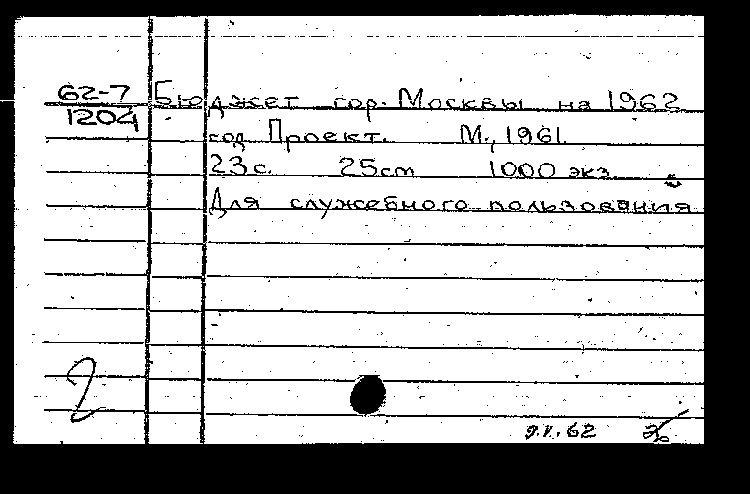 62-7 Бюджет гор. Москвы на 1962
1204
год Проект. М., 1961.
23 с. 25 см 1000 экз.
Для служебного пользования
2
9.V.62